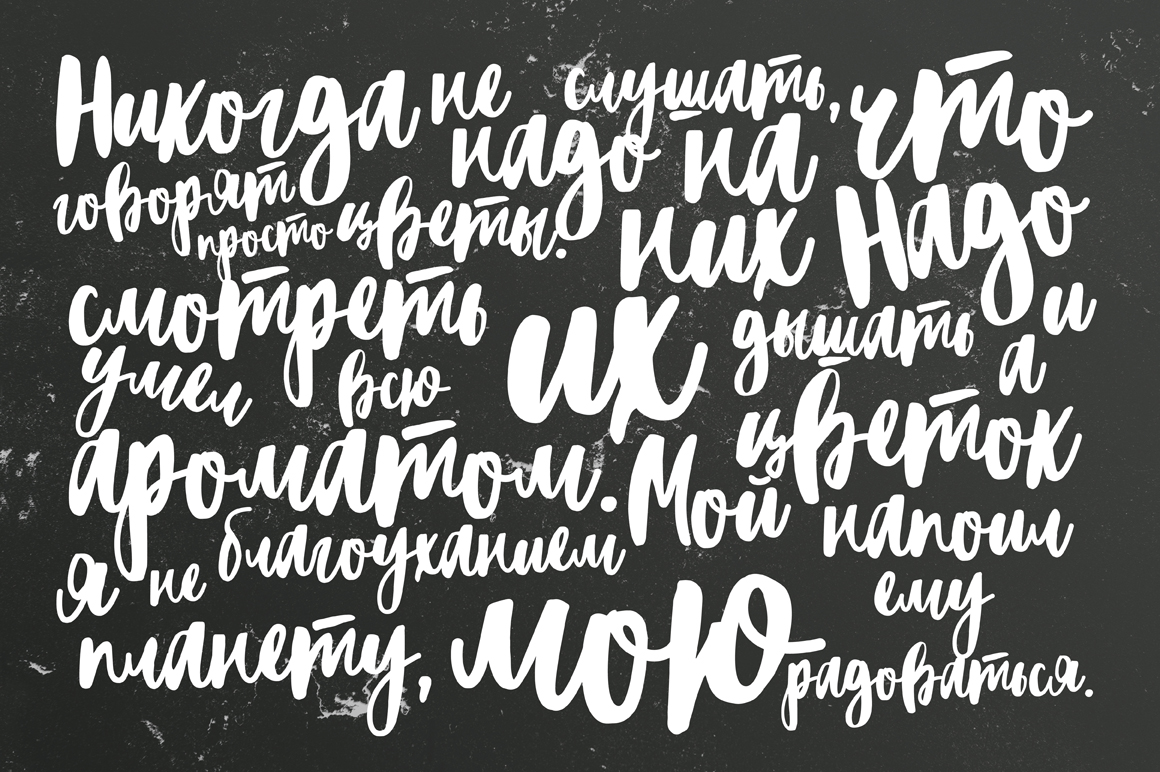 Никогда не слушать, что
говорят надо на
просто цветы. них Надо
смотреть их дышать и
умел всю а
ароматом. Мой цветок
я не благоуханием напоил
планету, мою ему
радоваться.